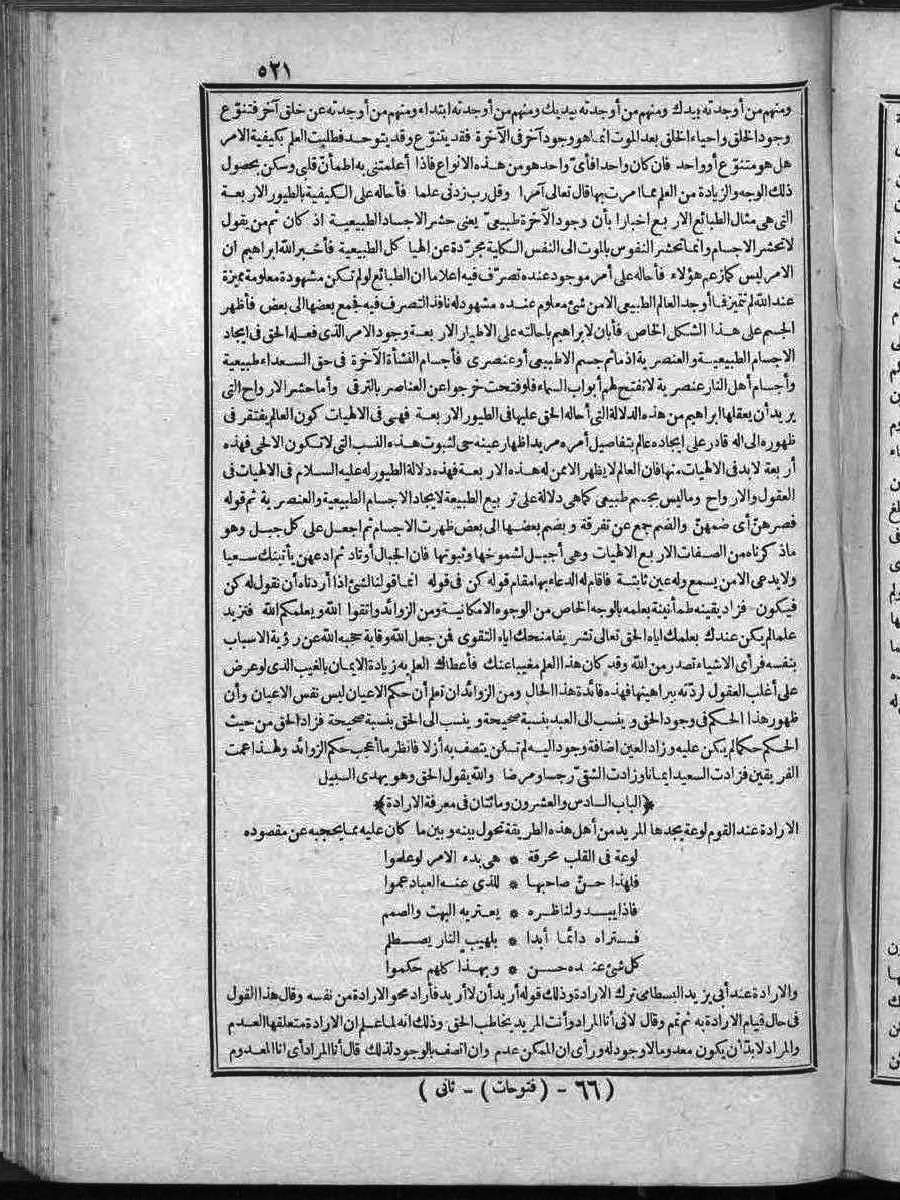 ٥٢١
ومنهم من أوجدته بيدك ومنهم من أوجدته بيديك ومنهم من أوجدته ابتداء ومنهم من أوجدته عن خلق آخر فتنوّع
وجود الخلق واحياء الخلق بعد الموت انما هو وجود آخر فى الآخرة فقد يتنوّع وقد يتوحد فطلبت العلم بكيفية الامر
هل هو متنوّع أو واحد فان كان واحدا فأىّ واحد هو من هذه الانواع فاذا أعلمتنى به اطمأنّ قلبى وسكن بحصول
ذلك الوجه والزيادة من العلم مما امرت بها قال تعالى آمرا وقل رب زدنى علما فأحاله على الكيفية بالطيور الاربعة
التى هى مثال الطبائع الاربع اخبارا بأن وجود الآخرة طبيعىّ يعنى حشر الاجساد الطبيعية اذ كان ثم من يقول
لا تحشر الاجسام وانما تحشر النفوس بالموت الى النفس الكلية مجرّدة عن الهياكل الطبيعية فأخبر الله ابراهيم ان
الامر ليس كما زعم هؤلاء فأحاله على أمر موجود عنده تصرّف فيه اعلاما ان الطبائع لو لم تكن مشهودة معلومة مميزة
عند الله لم تتميز فما أوجد العالم الطبيعى الا من شئ معلوم عنده مشهود له نافذ التصرف فيه فجمع بعضها الى بعض فأظهر
الجسم على هذا الشكل الخاص فأبان لابراهيم باحالته على الاطيار الاربعة وجود الامر الذى فعله الحق فى ايجاد
الاجسام الطبيعية والعنصرية اذ ما ثم جسم الا طبيعى أو عنصرى فأجسام النشأة الآخرة فى حق السعداء طبيعية
وأجسام أهل النار عنصرية لا تفتح لهم أبواب السماء فلو فتحت خرجوا عن العناصر بالترقى وأما حشر الارواح التى
يريد أن يعقلها ابراهيم من هذه الدلالة التى أحاله الحق عليها فى الطيور الاربعة فهى فى الالهيات كون العالم يفتقر فى
ظهوره الى اله قادر على ايجاده عالم بتفاصيل أمره مريد اظهار عينه حى لثبوت هذه النسب التى لا تكون الا لحى فهذه
أربعة لا بد فى الالهيات منها فان العالم لا يظهر الا ممن له هذه الاربعة فهذه دلالة الطيور له عليه السلام فى الالهيات فى
العقول والارواح وما ليس بجسم طبيعى كما هى دلالة على تربيع الطبيعة لايجاد الاجسام الطبيعية والعنصرية ثم قوله
فصرهنّ أى ضمهنّ والضم جمع عن تفرقة وبضم بعضها الى بعض ظهرت الاجسام ثم اجعل على كل جبل وهو
ما ذكرناه من الصفات الاربع الالهيات وهى أجبل لشموخها وثبوتها فان الجبال أوتاد ثم ادعهن يأتينك سعيا
ولا يدعى الا من يسمع وله عين ثابتة فاقام له الدعاء بها مقام قوله كن فى قوله انما قولنا لشئ اذا أردناه أن نقول له كن
فيكون فزاد يقينه طمأنينة بعلمه بالوجه الخاص من الوجوه الامكانية ومن الزوائد واتقوا الله ويعلمكم الله فتزيد
علما لم يكن عندك يعلمك اياه الحق تعالى تشريفا منحك اياه التقوى فمن جعل الله وقاية حجبه الله عن رؤية الاسباب
بنفسه فرأى الاشياء تصدر من الله وقد كان هذا العلم مغيبا عنك فأعطاك العلم به زيادة الايمان بالغيب الذى لو عرض
على أغلب العقول لردّته ببراهينها فهذه فائدة هذا الحال ومن الزوائد ان تعلم أن حكم الاعيان ليس نفس الاعيان وأن
ظهور هذا الحكم فى وجود الحق وينسب الى العبد بنسبة صحيحة وينسب الى الحق بنسبة صحيحة فزاد الحق من حيث
الحكم حكما لم يكن عليه وزاد العين اضافة وجود اليه لم تكن يتصف به أزلا فانظر ما أعجب حكم الزوائد ولهذا عمت
الفريقين فزادت السعيد ايمانا وزادت الشقىّ رجسا ومرضا والله يقول الحق وهو يهدى السبيل
﴿الباب السادس والعشرون ومائتان فى معرفة الارادة﴾
الارادة عند القوم لوعة يجدها المريد من أهل هذه الطريقة تحول بينه وبين ما كان عليه مما يحجبه عن مقصوده
لوعة فى القلب محرقة * هى بدء الامر لو علموا
فلهذا حنّ صاحبها * للذى عنه العباد عموا
فاذا يبدو لناظره * يعتريه البهت والصمم
فتراه دائما أبدا * بلهيب النار يصطلم
كل شئ عنده حسن * وبهذا كلهم حكموا
والارادة عند أبى يزيد البسطامى ترك الارادة وذلك قوله أريد أن لا أريد فأراد محو الارادة من نفسه وقال هذا القول
فى حال قيام الارادة به ثم تمم وقال لانى أنا المراد وأنت المريد يخاطب الحق وذلك انه لما علم ان الارادة متعلقها العدم
والمراد لا بدّ أن يكون معدوما لا وجود له ورأى ان الممكن عدم وان اتصف بالوجود لذلك قال أنا المراد أى انا المعدوم
(٦٦ - (فتوحات) - ثانى)